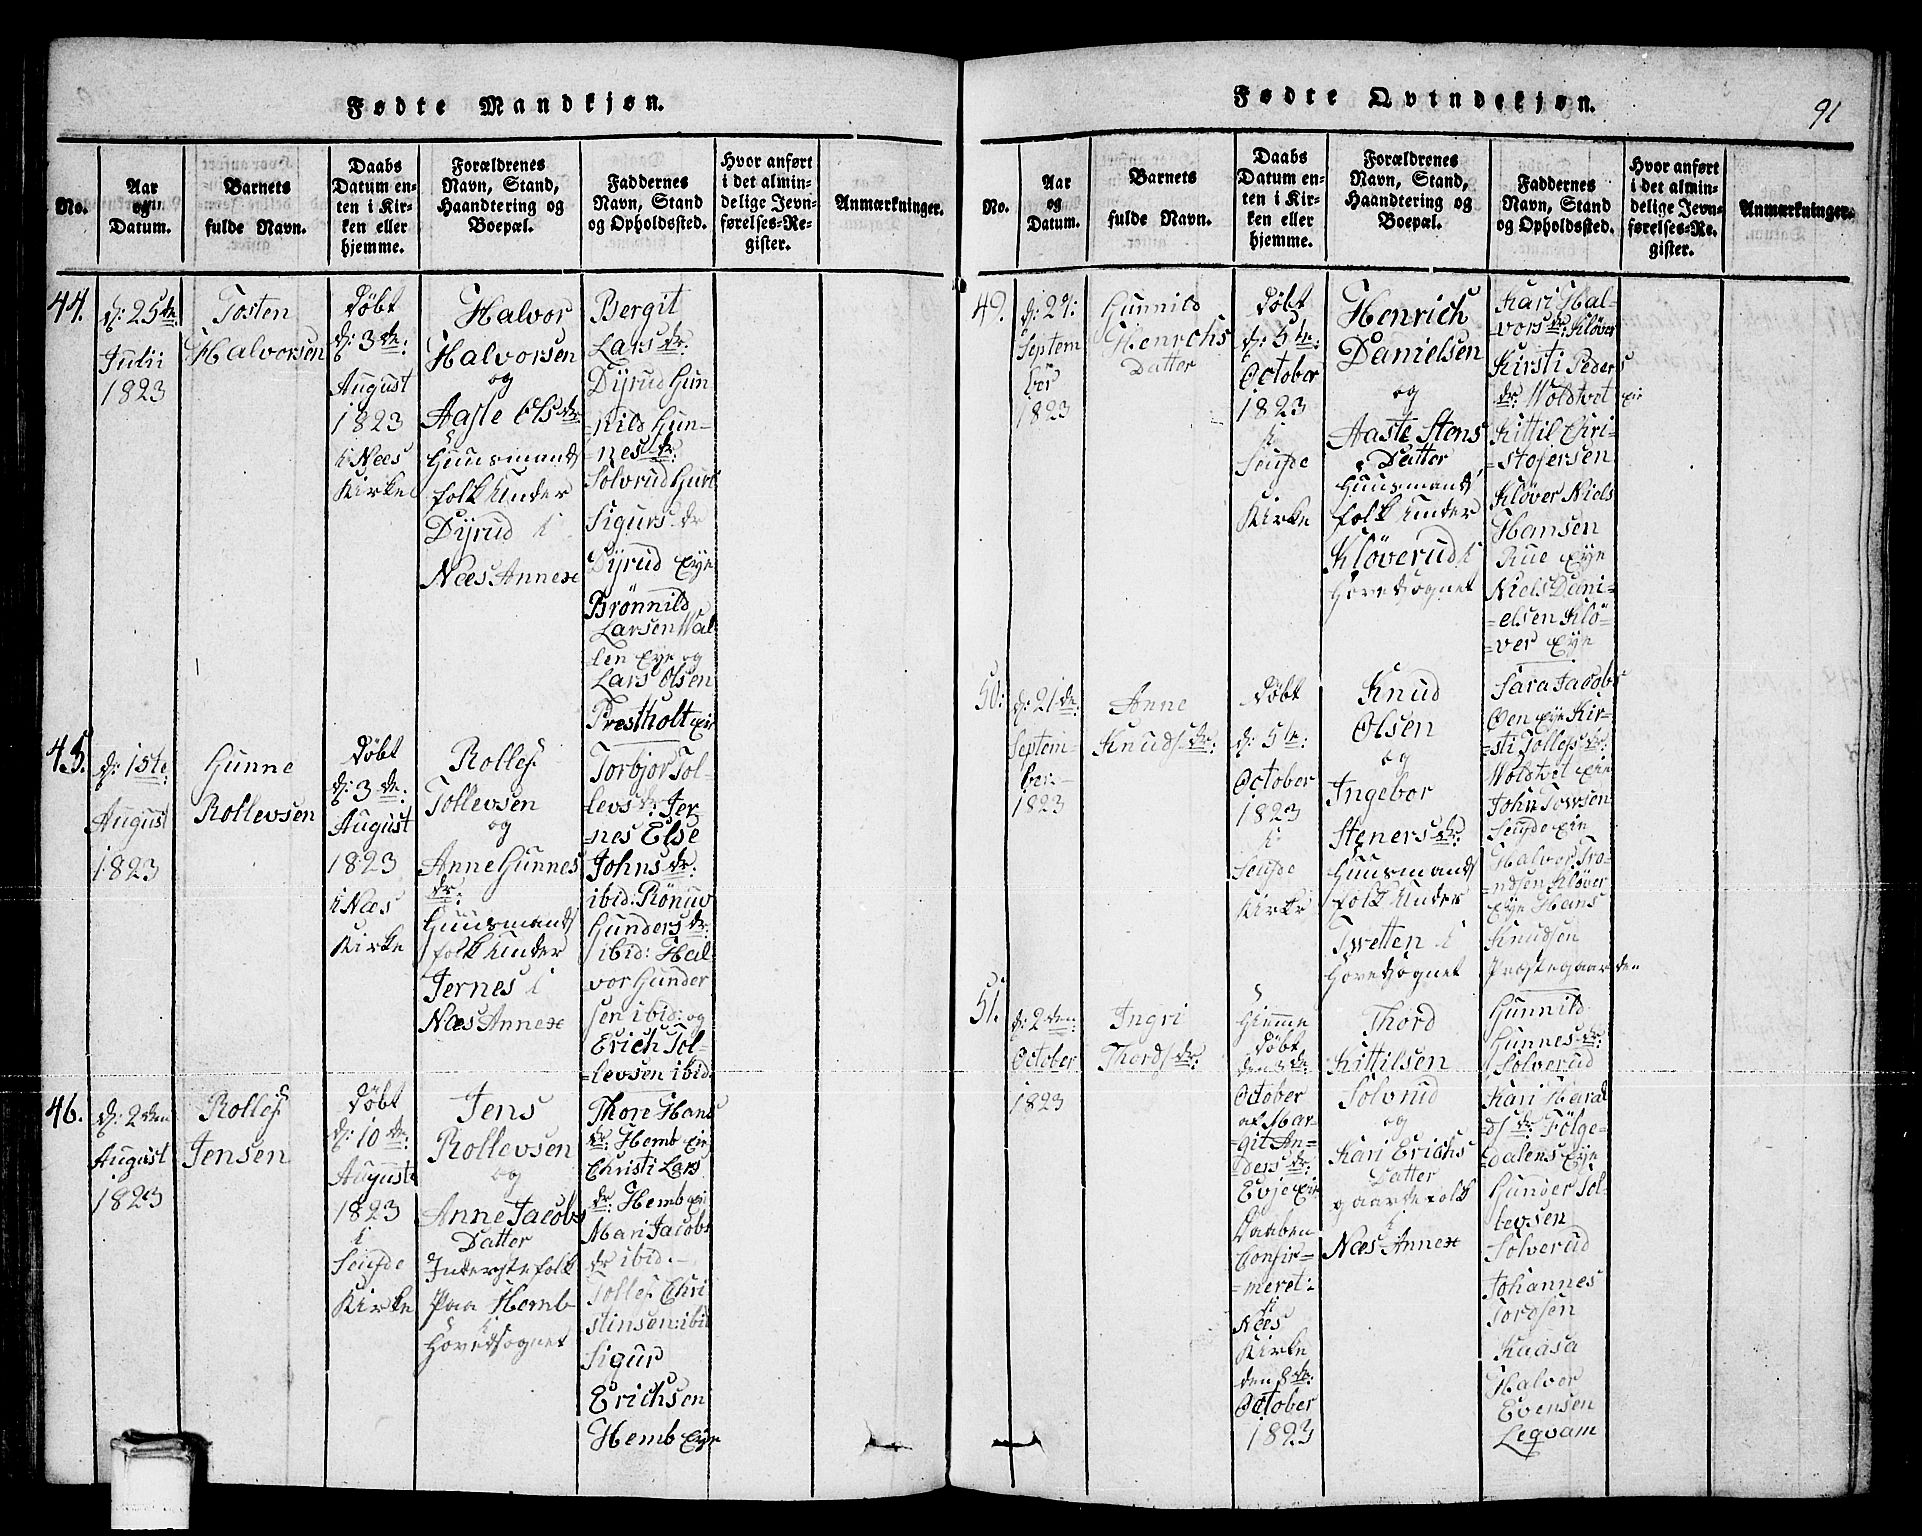 Fødte Mandkjøn.
No.
Aar
og
Datum.
Barnets
fulde Navn.
Daabs
Datum en-
ten i Kir-
ken eller
hjemme.
Forældrenes
Navn, Stand,
Haandtering og
Boepæl.
Faddernes
Navn, Stand
og Opholdssted.
Hvor anført
i det almin-
delige Jevn-
førelses-Re-
gister.
Anmærkninger.
44.
d: 25de:
Julii
1823
Tosten
Halvorsen
døbt
d: 3de:
August
1823
i Næs
Kirke
Halvor
Halvorsen
og
Aaste Olsdr:
Huusmands
folk under
Dyrud i
Næs Annex
Bergit
Larsdr:
Dyrud Gun-
=nild Gun-
nesdr:
Solvrud Guri
Sigursdr
Dyrud Eye
Brønnild
Larsen Wal
=len Eye og
Lars Olsen
Prestholt eie
45.
d: 1ste:
August
1823
Gunne
Rollevsen
døbt
d: 3de:
August
1823
i Næs
Kirke
Rollef
Tollevsen
og
Anne Gunnes
dr:
Huusmands
folk under
Jernes i
Næs Annex
Torbjor Tol-
levsdr: Jer
nes Else
Johnsdr:
ibid: Rönnw
Gundersdr:
ibid: Hal
vor Gunder
sen ibid: og
Erich Tol-
=levsen ibid.
46.
d: 2den
August
1823
Rollef
Jensen
døbt
d: 10de:
August
1823
i
Seufde
Kirke
Jens
Rollevsen
og
Anne Jacobs
Datter
Inderstefolk
paa Hemb
i
Hovedsognet
Thore Hans
dr: Hemb eie
Christi Lars
dr: Hemb eie
Mari Jacobs
dr ibid.
Tollef Chri
stinsen: ibid
Sigur
Erichsen
Hemb Eye
Fødte Qvindekjøn.
91
No.
Aar
og
Datum.
Barnets
fulde Navn.
Daabs
Datum en-
ten i Kir-
ken eller
hjemme.
Forældrenes
Navn, Stand,
Haandtering og
Boepæl.
Faddernes
Navn, Stand
og Opholdssted.
Hvor anført
i det almin-
delige Jevn-
førelses-Re-
gister.
Anmærkninger.
49.
Septem
ber
1823
Gunnild
Henrichs
Datter
døbt
d: 5te:
October
1823
i
Seufde
Kirke
Henrich
Danielsen
og
Aaste Stens
Datter
Huusmands
folk under
Kløverud i
Hovedsognet
Kari Hal-
vorsdr: Kløver
Kirsti Peders
dr: Woldtvet eie
Kittil Chri-
=stofersen
Kløver Niels
Hansen
Rue Eye
Niels Dani-
=elsen Klö=
=ver Eye
50:
d: 21de:
Septem-
ber
1823
Anne
Knudsdr:
døbt
d: 5te:
October
1823
i
Seufde
Kirke
Knud
Olsen
og
Ingebor
Stenersdr:
Huusmands
folk under
Twetten i
Hovedsognet
Sara Jacobs
Øen Eye Kir-
=sti Tollefsdr:
Woldtvet eie
John Towsen
Seufde eie
Halvor Tro-
ndsen Kløver
Eye Hans
Knudsen
Præstegaarden
51.
d: 2den:
October
1823
Ingri
Thordsdr:
Hiemme
døbt
den 3de
October
af Mar-
=git An-
=dersdr:
Evje eie
Daaben
Confir=
=meret:
i
Næs
Kirke
den 8de
October
1823
Thord
Kittilsen
Solvrud
og
Kari Erichs
Datter
gaardefolk
i
Næs Annex
Gunnild
Gunnesdr:
Solverud
Kari Haral
dsdr: Fölge-
=dalens Eye
Gunder Tol-
levsen
Solverud
Johannes
Tordsen
Kuaasa
Halvor
Evensen
Leqvam